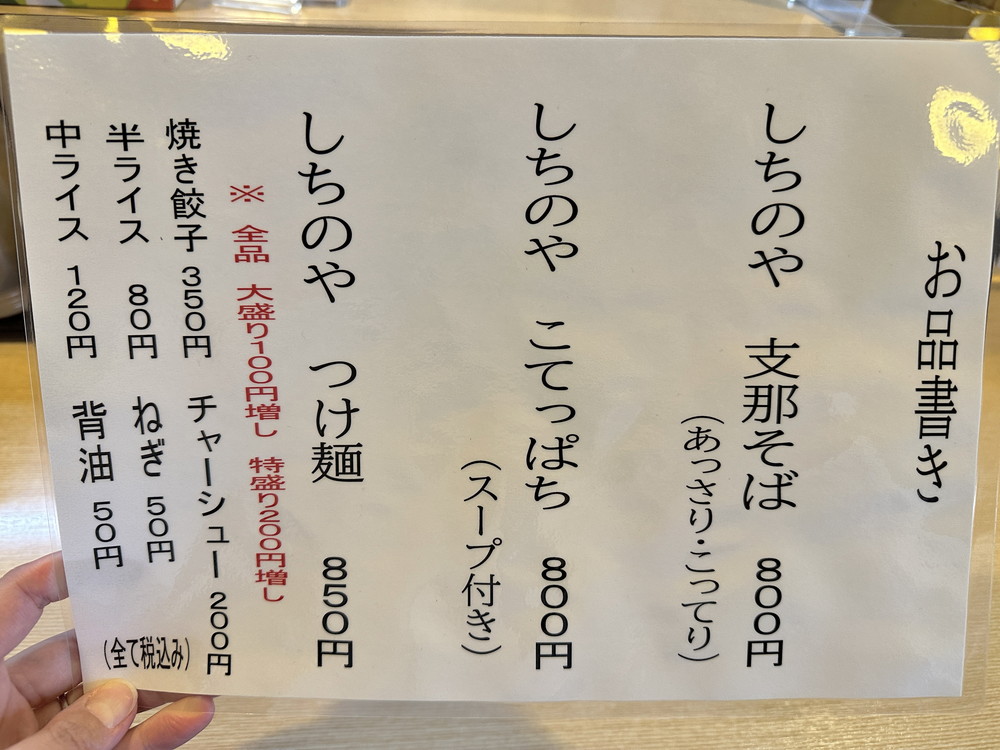 お品書き
しちのや 支那そば 800円
（あっさり・こってり）
しちのや こてっぱち 800円
（スープ付き）
しちのや つけ麺 850円
※ 全品 大盛り100円増し 特盛り200円増し
焼き餃子 350円 チャーシュー 200円
半ライス 80円 ねぎ 50円
中ライス 120円 背油 50円
（全て税込み）